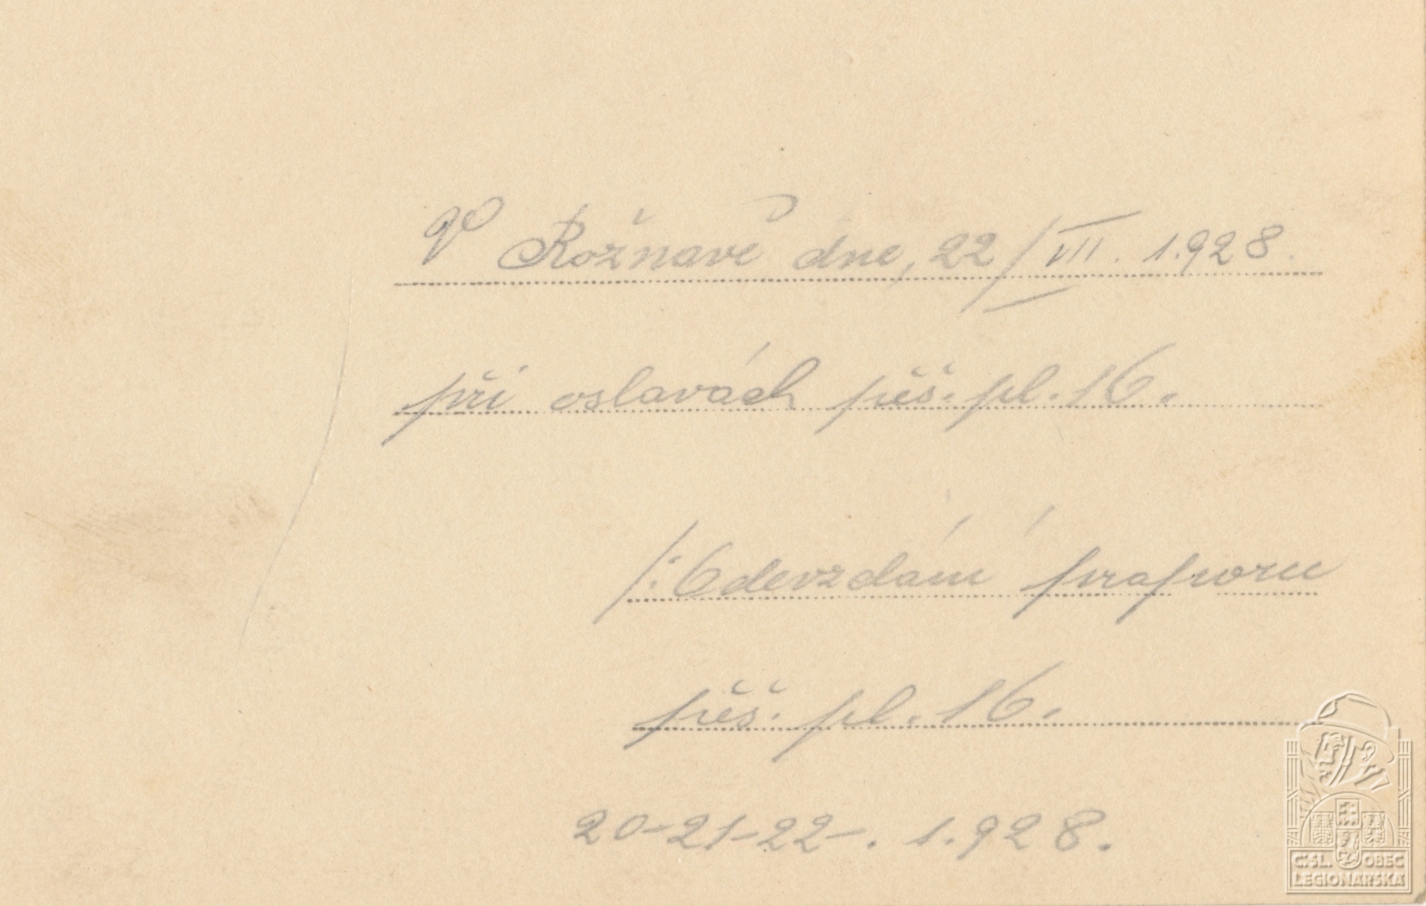 V Rožňavě dne, 22/VII. 1.928.
při oslavách pěš. pl. 16.
/: Odevzdání praporu
pěš. pl. 16.
20-21-22-. 1.928.
Č.SL. OBEC
LEGIONÁŘSKÁ